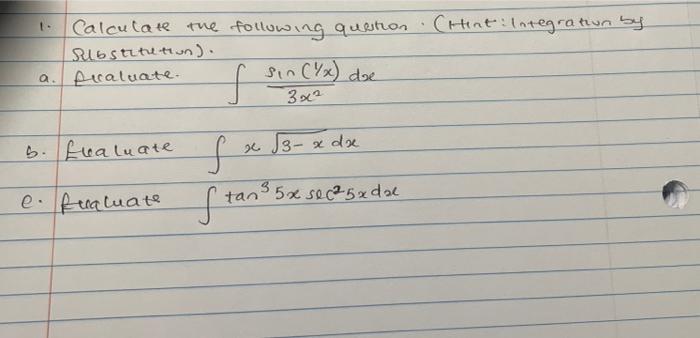 1. Calculate the following question. (Hint: Integration by
Substitution).
a. Evaluate. ∫ sin(1/x)/3x² dx
b. Evaluate ∫ x √3-x dx
c. Evaluate ∫ tan³ 5x sec² 5x dx